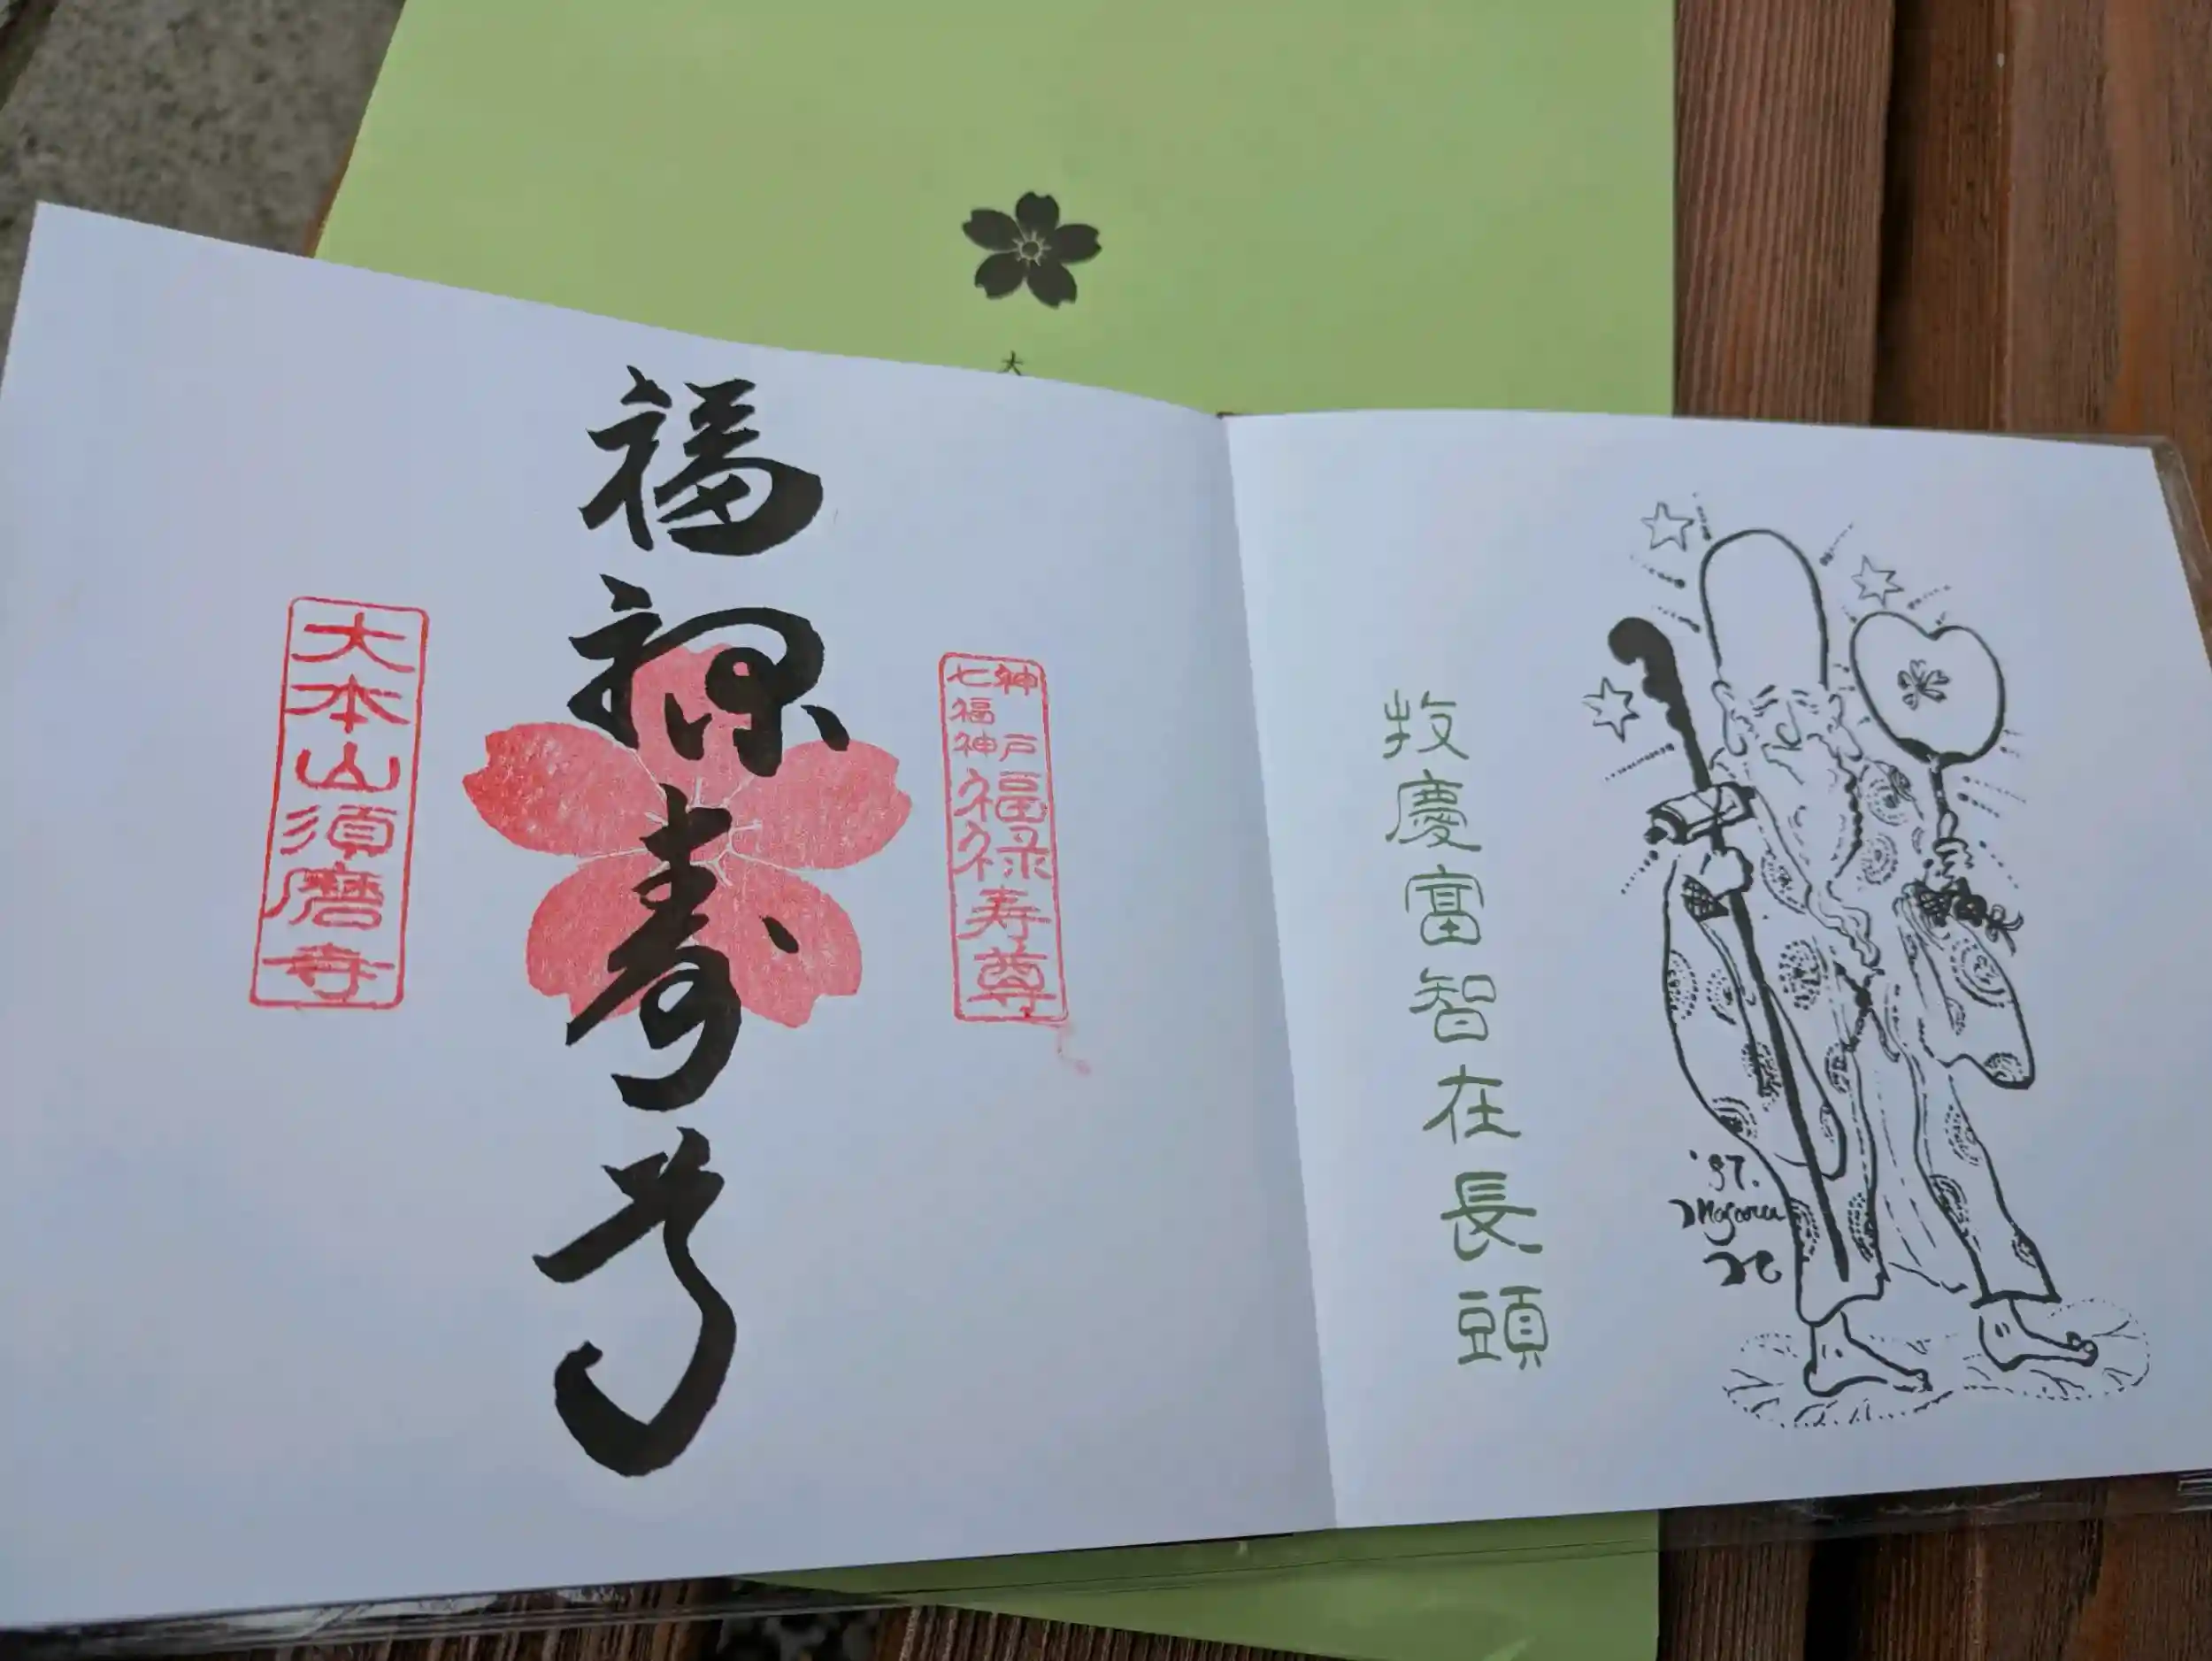 大
福禄寿尊
大本山須磨寺
神戸
七福神
福禄寿尊
牧慶富智在長頭
'97.